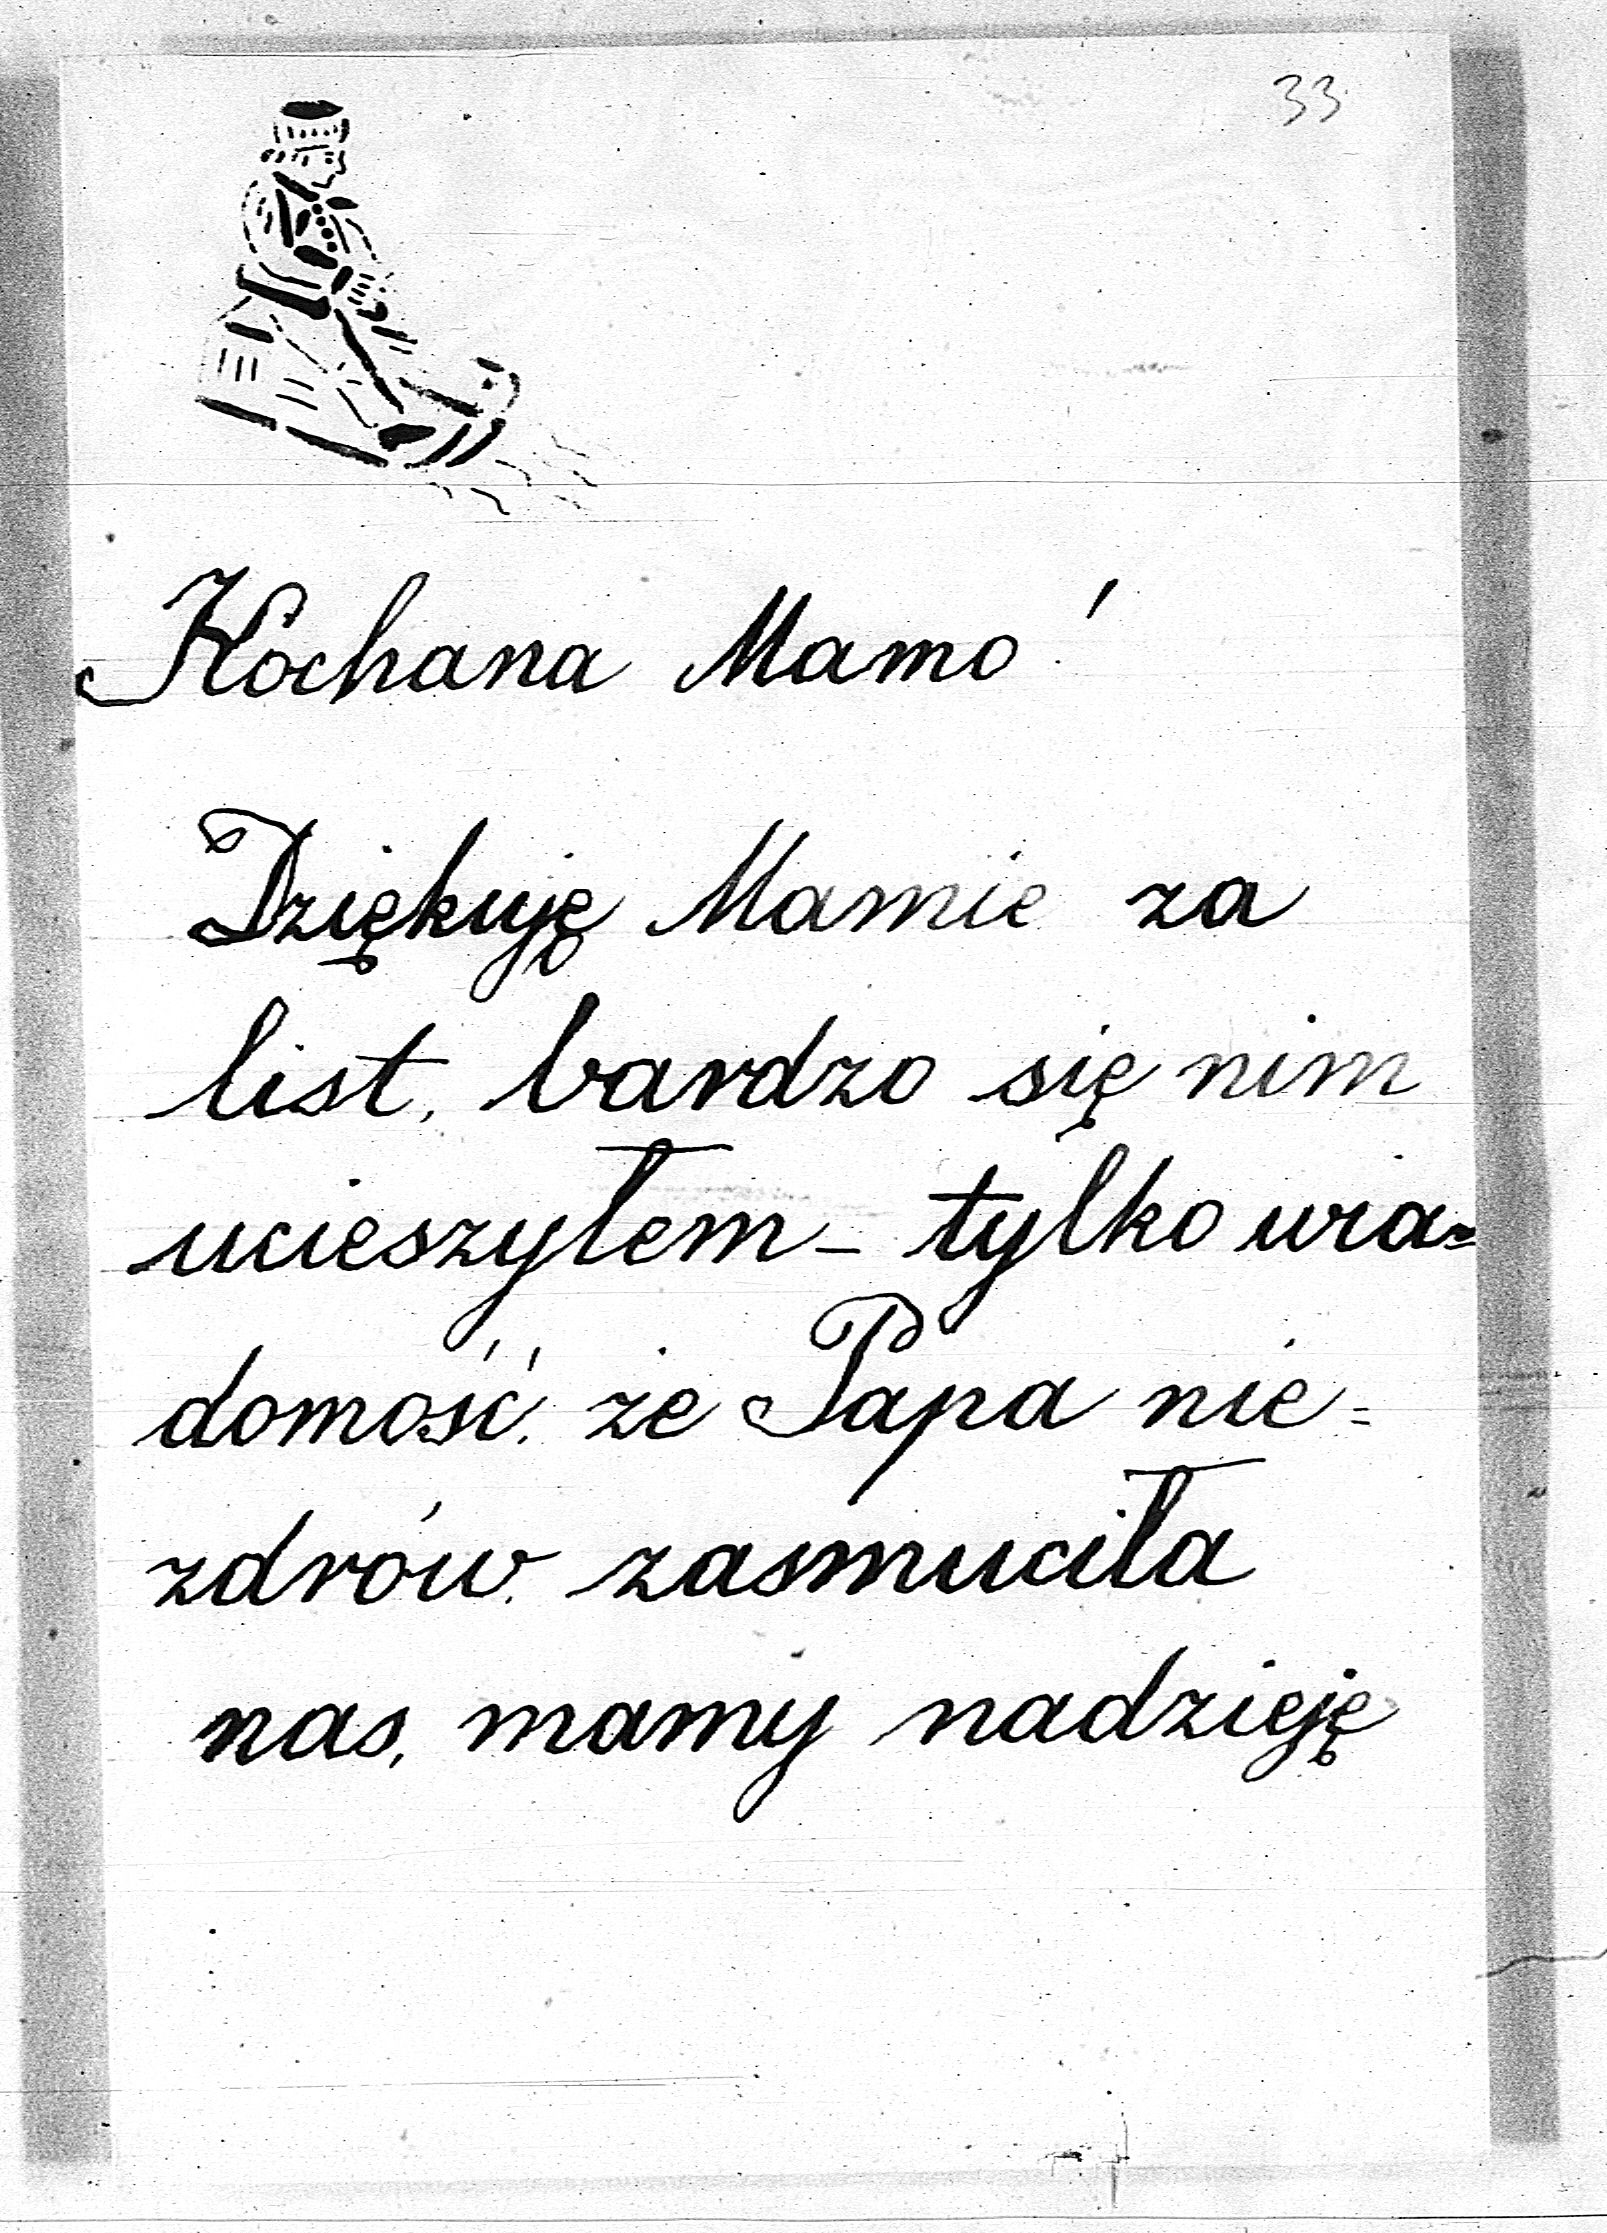 33
Kochana Mamo!
Dziękuję Mamie za
list, bardzo się nim
ucieszyłem - tylko wia=
domość, że Papa nie=
zdrów, zasmuciła
nas, mamy nadzieję